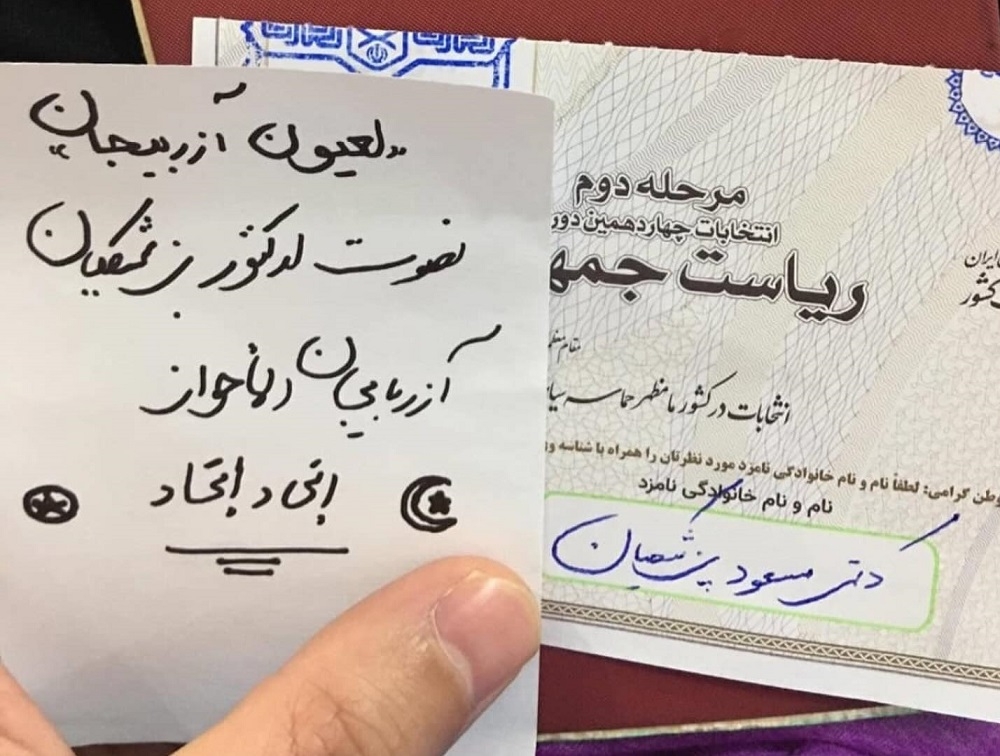 "لعيون آزربيجان"
نصوت لدكتور بزشكيان
آزربايجان الاحواز
اتحاد اتحاد
مرحله دوم
انتخابات چهاردهمین دور
ریاست جمه
ایران
کشور
مقام معظم
انتخابات در کشور ما مظهر حماسه سیا
وطن گرامی: لطفاً نام و نام خانوادگی نامزد مورد نظرتان را همراه با شناسه و
نام و نام خانوادگی نامزد
دکتر مسعود پزشکیان